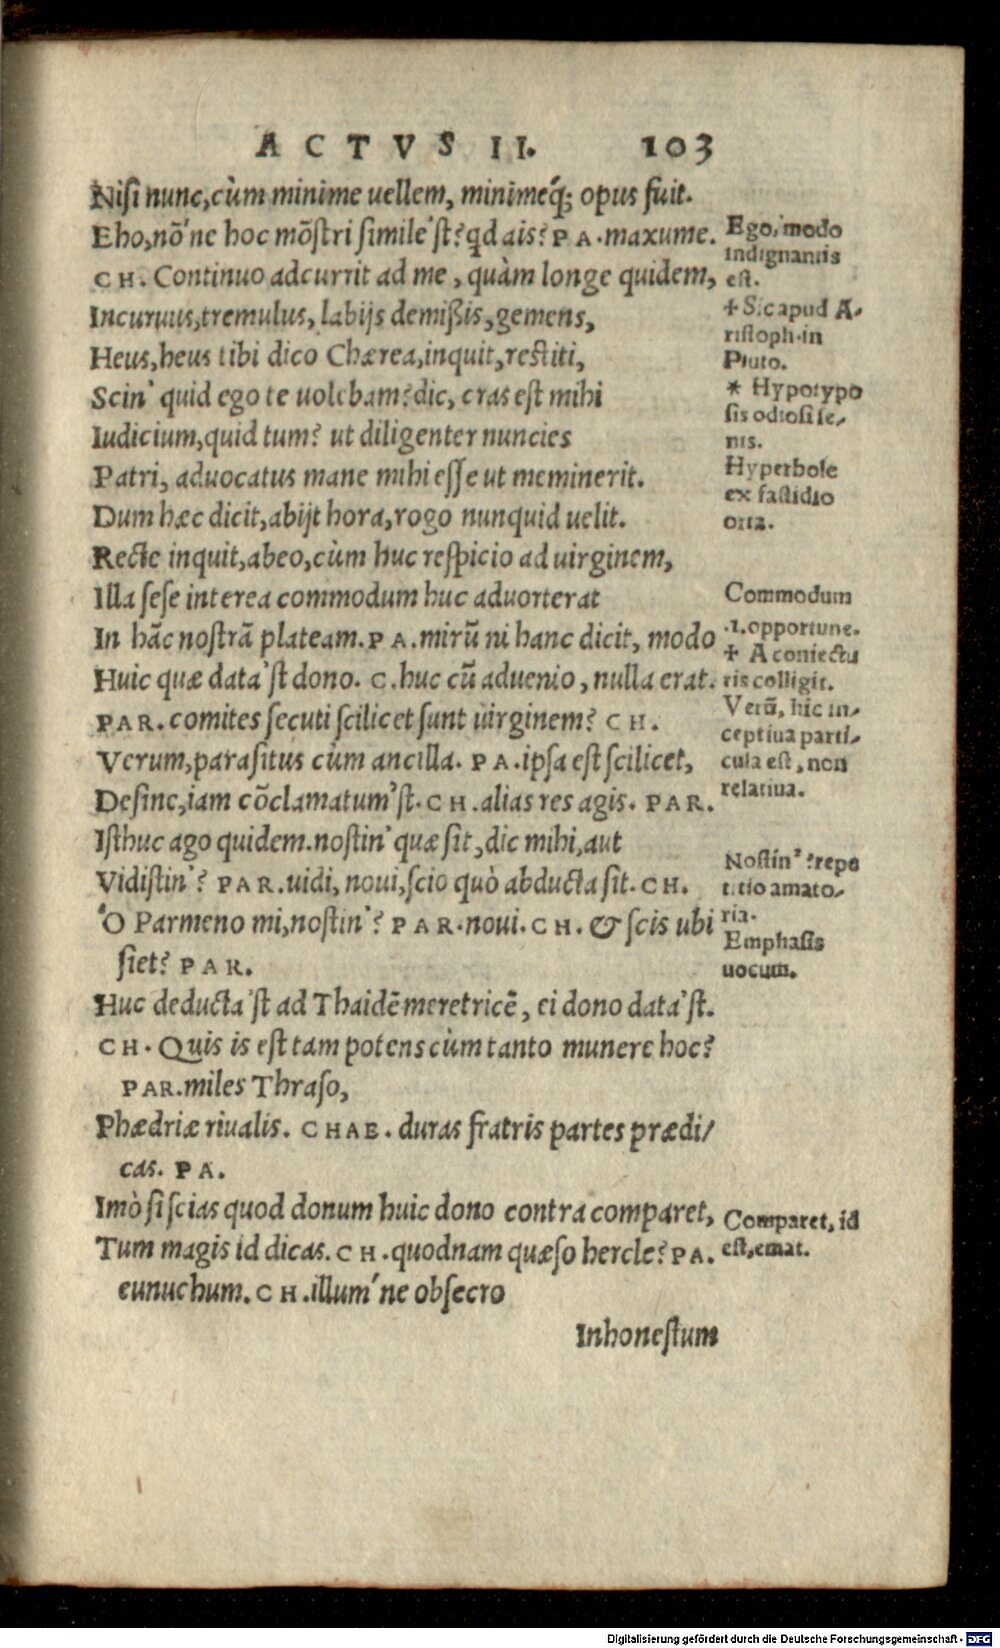 ACTVS II. 103
Nisi nunc, cùm minime uellem, minimeq́; opus fuit.
Eho, nõ'ne hoc mõstri simile'st? qd ais? PA. maxume.
CH. Continuo adcurrit ad me, quàm longe quidem,
Incuruus, tremulus, labijs demißis, gemens,
Heus, heus tibi dico Chærea, inquit, restiti,
Scin' quid ego te uolebam? dic, cras est mihi
Iudicium, quid tum? ut diligenter nuncies
Patri, aduocatus mane mihi esse ut meminerit.
Dum hæc dicit, abijt hora, rogo nunquid uelit.
Recte inquit, abeo, cùm huc respicio ad uirginem,
Illa sese interea commodum huc aduorterat
In hãc nostrã plateam. PA. mirũ ni hanc dicit, modo
Huic quæ data'st dono. C. huc cũ aduenio, nulla erat.
PAR. comites secuti scilicet sunt uirginem? CH.
Verum, parasitus cùm ancilla. PA. ipsa est scilicet,
Desine, iam cõclamatum'st. CH. alias res agis. PAR.
Isthuc ago quidem. nostin' quæ sit, dic mihi, aut
Vidistin'? PAR. uidi, noui, scio quò abducta sit. CH.
'O Parmeno mi, nostin'? PAR. noui. CH. & scis ubi
siet? PAR.
Huc deducta'st ad Thaidẽ meretricẽ, ei dono data'st.
CH. Quis is est tam potens cùm tanto munere hoc?
PAR. miles Thraso,
Phædriæ riualis. CHAE. duras fratris partes prædi/
cas. PA.
Imò si scias quod donum huic dono contra comparet,
Tum magis id dicas. CH. quodnam quæso hercle? PA.
eunuchum. CH. illum'ne obsecro
Inhonestum
Ego, modo
indignantis
est.
+ Sic apud A-
ristoph. in
Pluto.
* Hypotypo
sis odiosi se-
nis.
Hyperbole
ex fastidio
orta.
Commodum
.i. opportune.
+ A coniectu
ris colligit.
Verũ, hic in-
ceptiua parti-
cula est, non
relatiua.
Nostin'? repe
titio amato-
ria.
Emphasis
uocum.
Comparet, id
est, emat.
Digitalisierung gefördert durch die Deutsche Forschungsgemeinschaft - DFG